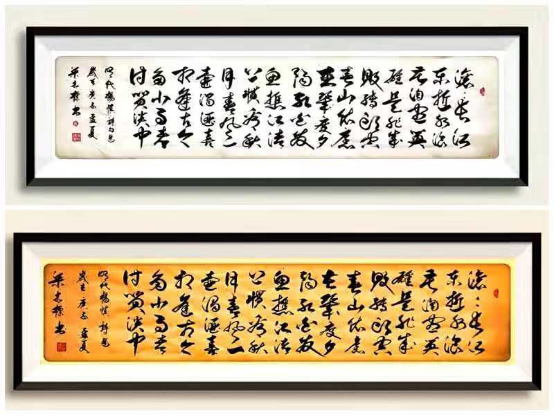 滚滚长江
东逝水浪
花淘尽英
雄是非成
败转头空
青山依旧
在几度夕
阳红白发
渔樵江渚
上惯看秋
月春风一
壶浊酒喜
相逢古今
多少事都
付笑谈中
明代杨慎词
岁在庚子孟夏
书
滚滚长江
东逝水浪
花淘尽英
雄是非成
败转头空
青山依旧
在几度夕
阳红白发
渔樵江渚
上惯看秋
月春风一
壶浊酒喜
相逢古今
多少事都
付笑谈中
明代杨慎词
岁在庚子孟夏
书